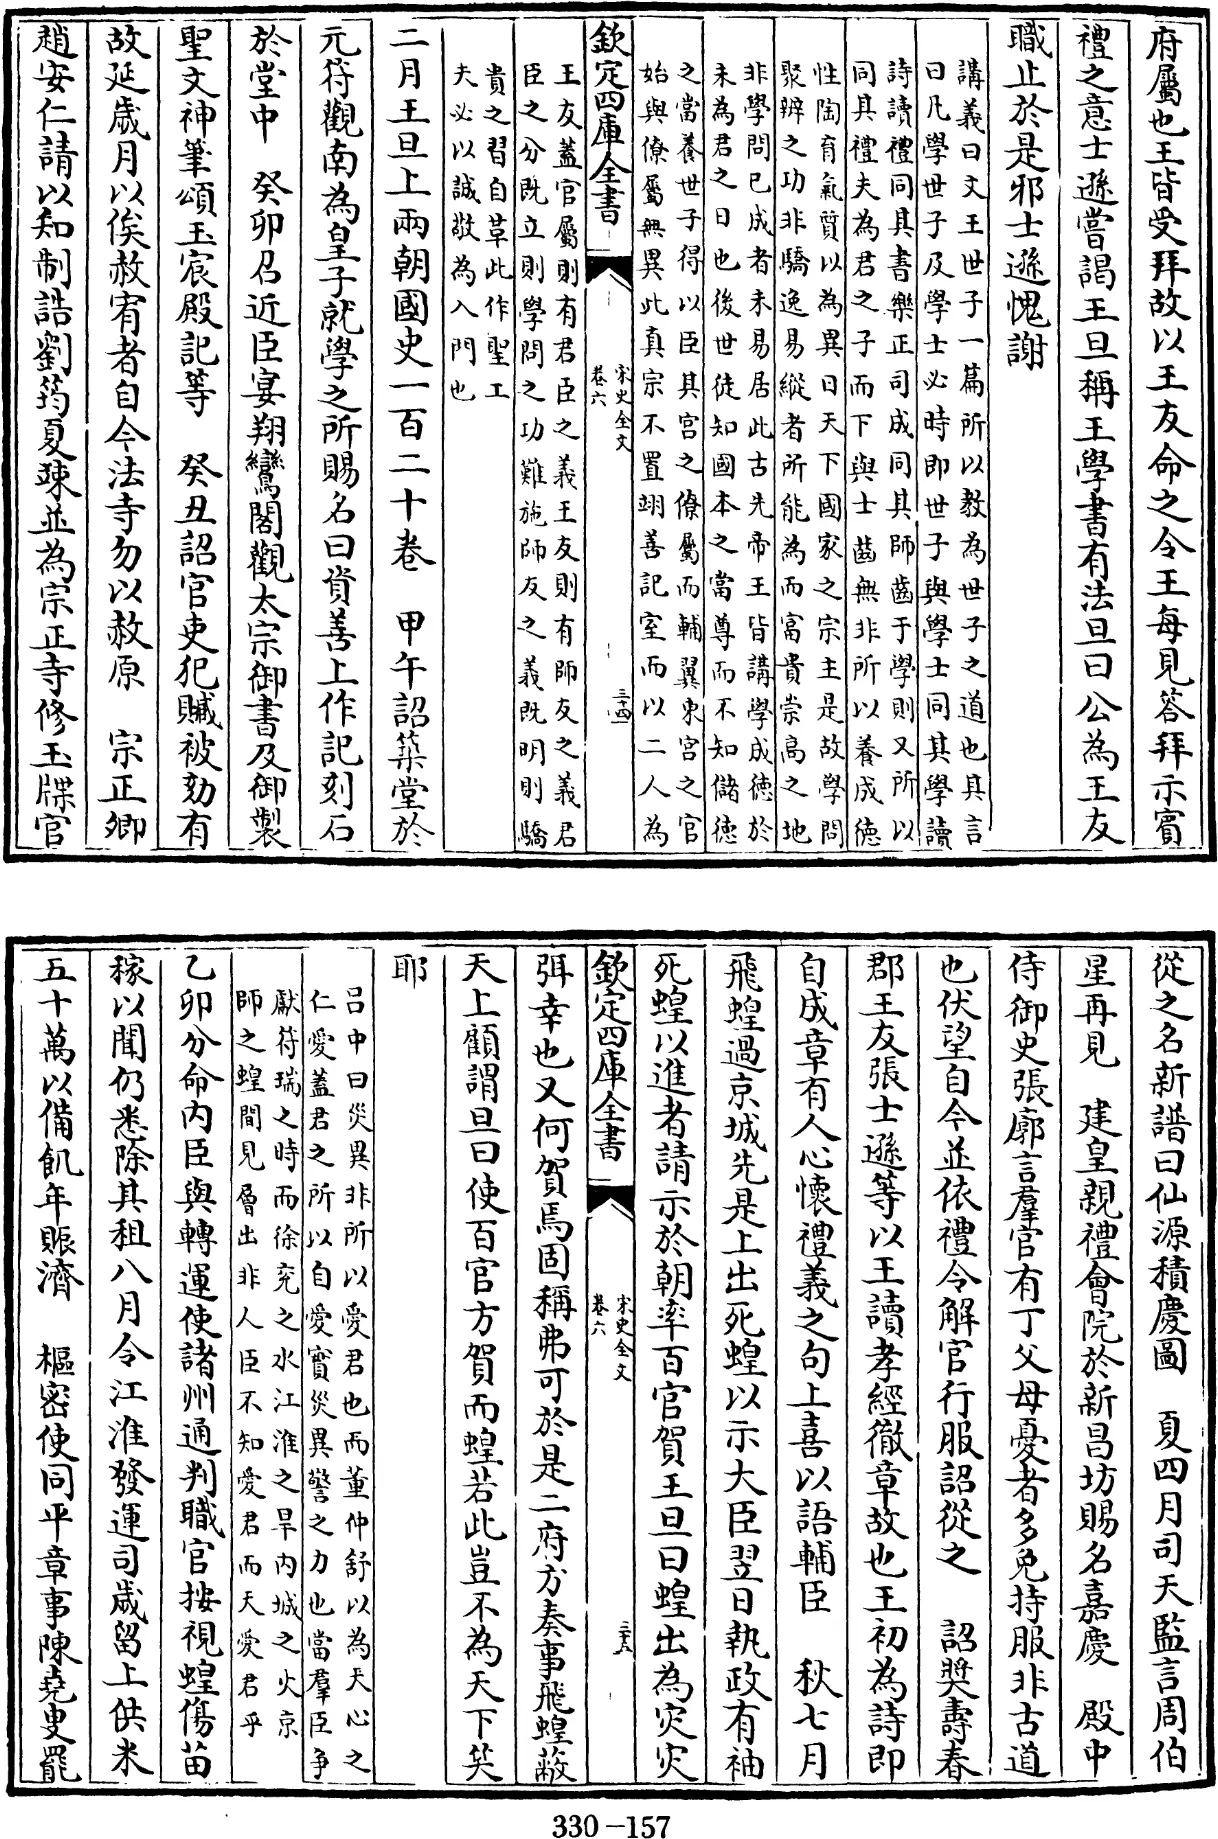 府屬也王皆受拜故以王友命之令王每見答拜示賓
禮之意士遜嘗謁王旦稱王學書有法旦曰公為王友
職止於是邪士遜愧謝
講義曰文王世子一篇所以教為世子之道也其言
曰凡學世子及學士必時即世子與學士同其學讀
詩讀禮同其書樂正司成同其師齒于學則又所以
同其禮夫為君之子而下與士齒無非所以養成德
性陶育氣質以為異日天下國家之宗主是故學問
聚辨之功非驕逸易縱者所能為而富貴崇高之地
非學問已成者未易居此古先帝王皆講學成德於
未為君之日也後世徒知國本之當尊而不知儲德
之當養世子得以臣其宮之僚屬而輔翼東宮之官
始與僚屬無異此真宗不置翊善記室而以二人為
欽定四庫全書
宋史全文
卷六
三十四
王友蓋官屬則有君臣之義王友則有師友之義君
臣之分既立則學問之功難施師友之義既明則驕
貴之習自革此作聖工
夫必以誠敬為入門也
二月王旦上兩朝國史一百二十卷　甲午詔築堂於
元符觀南為皇子就學之所賜名曰資善上作記刻石
於堂中　癸卯召近臣宴翔鸞閣觀太宗御書及御製
聖文神筆頌玉宸殿記等　癸丑詔官吏犯贓被劾有
故延歲月以俟赦宥者自今法寺勿以赦原　宗正卿
趙安仁請以知制誥劉筠夏竦並為宗正寺修玉牒官
從之名新譜曰仙源積慶圖　夏四月司天監言周伯
星再見　建皇親禮會院於新昌坊賜名嘉慶　殿中
侍御史張廓言羣官有丁父母憂者多免持服非古道
也伏望自今並依禮令解官行服詔從之　詔奬壽春
郡王友張士遜等以王讀孝經徹章故也王初為詩即
自成章有人心懷禮義之句上喜以語輔臣　秋七月
飛蝗過京城先是上出死蝗以示大臣翌日執政有袖
死蝗以進者請示於朝率百官賀王旦曰蝗出為灾灾
欽定四庫全書
宋史全文
卷六
三十五
弭幸也又何賀焉固稱弗可於是二府方奏事飛蝗蔽
天上顧謂旦曰使百官方賀而蝗若此豈不為天下笑
耶
呂中曰災異非所以愛君也而董仲舒以為天心之
仁愛蓋君之所以自愛實災異警之力也當羣臣争
獻符瑞之時而徐兖之水江淮之旱内城之火京
師之蝗間見層出非人臣不知愛君而天愛君乎
乙卯分命内臣與轉運使諸州通判職官按視蝗傷苗
稼以聞仍悉除其租八月令江淮發運司歲留上供米
五十萬以備飢年賑濟　樞密使同平章事陳堯叟罷
330-157